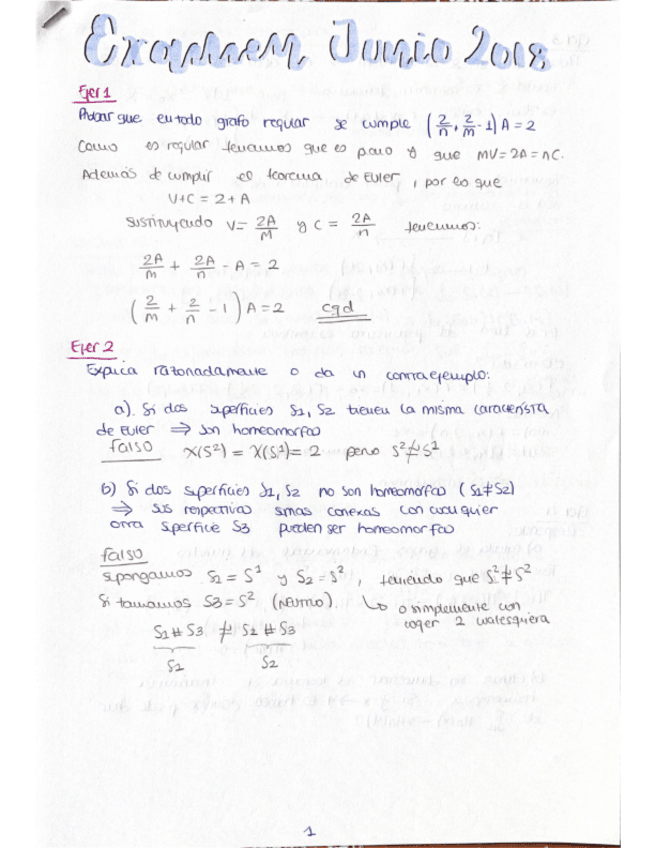 Examen Junio 2018
Ejer 1
Probar que en todo grafo regular se cumple (2/n + 2/m - 1) A = 2
Como es regular tenemos que es plano y que MV = 2A = nC.
Además de cumplir el teorema de Euler, por lo que
V+C = 2+A
sustituyendo V = 2A/M y C = 2A/n tenemos:
2A/m + 2A/n - A = 2
(2/m + 2/n - 1) A = 2 cqd
Ejer 2
Explica razonadamente o da un contraejemplo:
a). Si dos superficies S1, S2 tienen la misma caracerística
de Euler ⇒ son homeomorfas
falso X(S²) = X(S¹) = 2 pero S² ≠ S²
b) Si dos superficies S1, S2 no son homeomorfas (S1≠S2)
⇒ sus respectivas sumas conexas con cualquier
otra superficie S3 pueden ser homeomorfas
falso
supongamos S1 = S¹ y S2 = S², teniendo que S² ≠ S²
Si tomamos S3 = S² (NEUTRO). ↳ o simplemente con
coger 2 cualesquiera
S1 # S3 ≠ S2 # S3
S1 S2
1